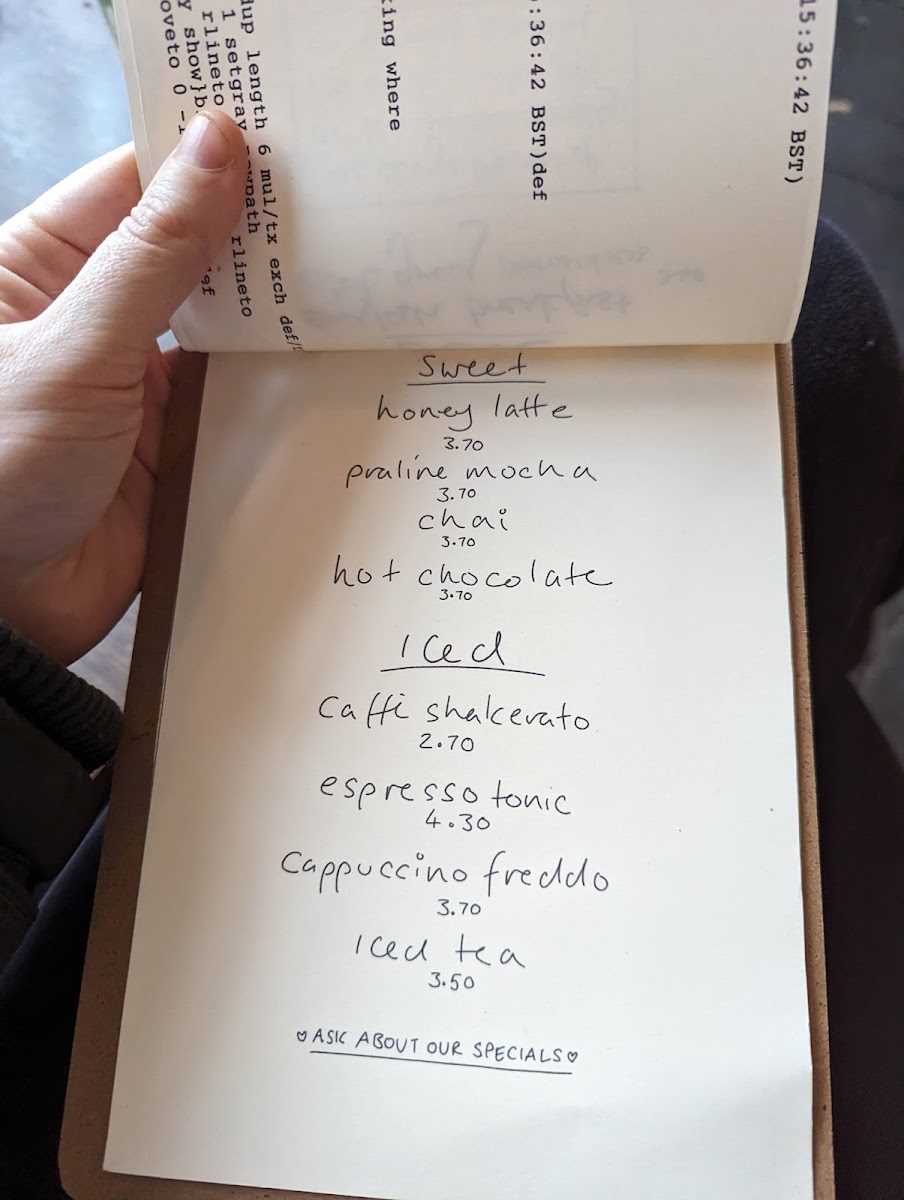 15:36:42 BST)
:36:42 BST)def
king where
dup length 6 mul/tx exch def/
1 setgray newpath rlineto
rlineto
y show}b
oveto 0
Sweet
honey latte
3.70
praline mocha
3.70
chai
3.70
hot chocolate
3.70
Iced
Caffè shakerato
2.70
espresso tonic
4.30
Cappuccino freddo
3.70
Iced tea
3.50
♡ASK ABOUT OUR SPECIALS♡